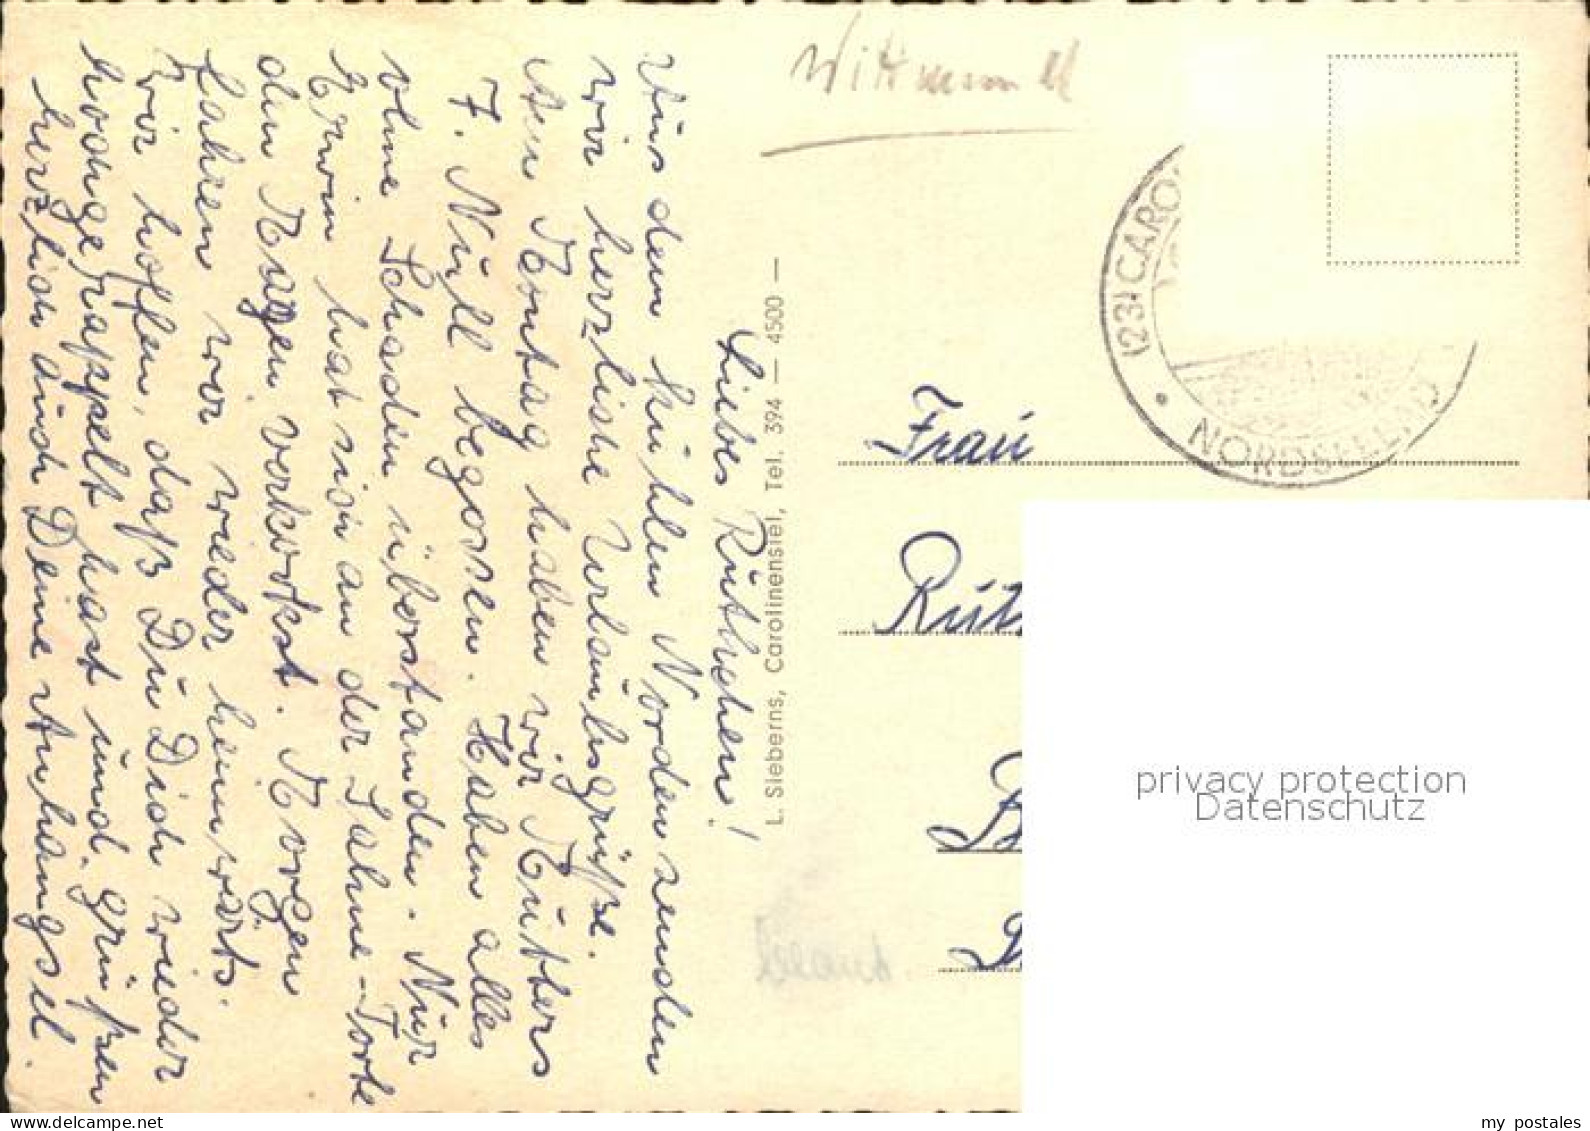 Liebes Rüthchen!
Aus dem kühlen Norden senden
wir herzliche Urlaubsgrüße.
Am Montag haben wir Mutters
7. Null begossen. Haben alles
ohne Schaden überstanden. Nur
Erwin hat sich an der Sahne-Torte
den Magen verkorkst. Morgen
fahren wir wieder heimwärts.
Wir hoffen, daß Du Dich wieder
hochgerappelt hast und grüßen
herzlich auch Deine Anhängsel.
L. Sieberns, Carolinensiel, Tel. 394 — 4500 —
(23) CARO
NORDSEEBAD
Frau
privacy protection
Datenschutz
my postales